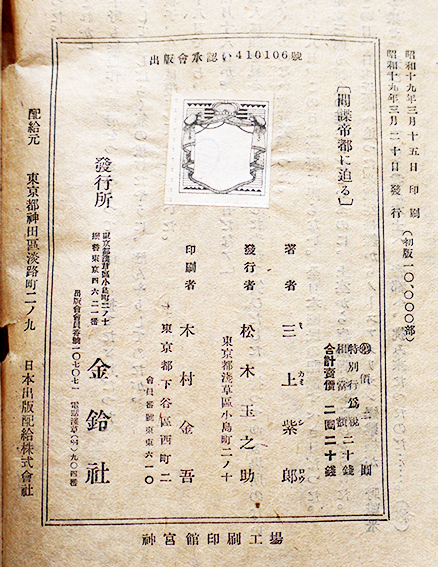 昭和十九年三月十五日 印刷
昭和十九年三月二十日 發行
(初版一〇,〇〇〇部)
出版會承認い410106號
〔間諜帝都に迫る〕
價 二圓
特別行爲税
相當額 二十錢
合計賣價 二圓二十錢
著者 三上紫郎
カミ シ ロウ
發行者 松木玉之助
東京都淺草區小島町二ノ十
印刷者 木村金吾
東京都下谷區西町二
會員番號東東六一〇
發行所 金鈴社
東京都淺草區小島町二ノ十
振替東京四六二一番
出版會會員番號一〇七〇七一
電話淺草(84)九〇四番
配給元 東京都神田區淡路町二ノ九 日本出版配給株式會社
神宮館印刷工場